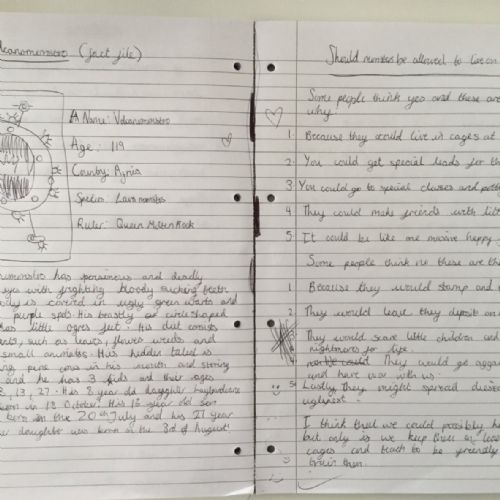 lcanomonstro (fact file)
Name: Volcanomonstro
Age: 119
Country: Agnia
Species: Lava monster
Ruler: Queen Molten Rock
has poisonous and deadly
eyes with frighting bloody sucking teeth
body is covered in ugly green warts and
purple spots. His beastly or circle shaped
has little ogres feet. His diet consists
such as leaves, flower weeds and
small animals. His hidden talent is
in his mouth and
and he has 3 kids and their ages
8, 13, 27. His 8 year old daughter
born in 12 October. His 13 year old son
born in the 20th July and his 27 year
daughter was born at the 3rd of August.
Should monsters be allowed to live on
Some people think yes and these are
why:
1. Because they could live in cages at
2. You could get special leads for th
3. You could go to special classes and
4. They could make friends with litt
5. It could be like one massive happy
Some people think no these are the
1. Because they would stamp and
2. They would leave they deposit on
They would scare little children and
nightmares for life.
They would go again
and have war with us.
5. Lastly, They might spread
ugliness.
I think that we could possibly h
but only if we keep them on
cages and teach to be friendly
brain them.